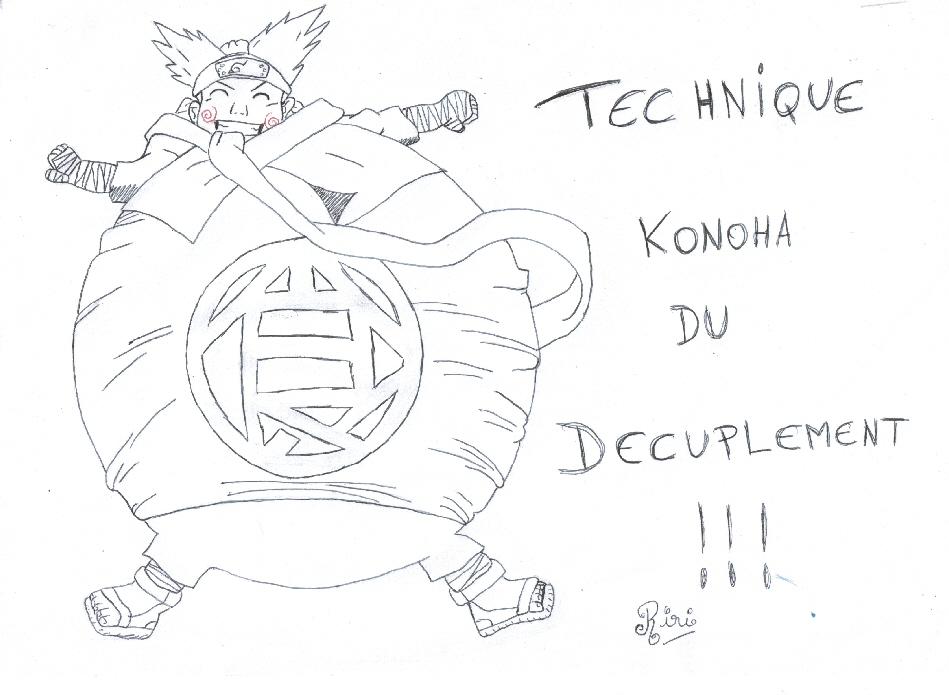 TECHNIQUE
KONOHA
DU
DECUPLEMENT
!!!
Riri